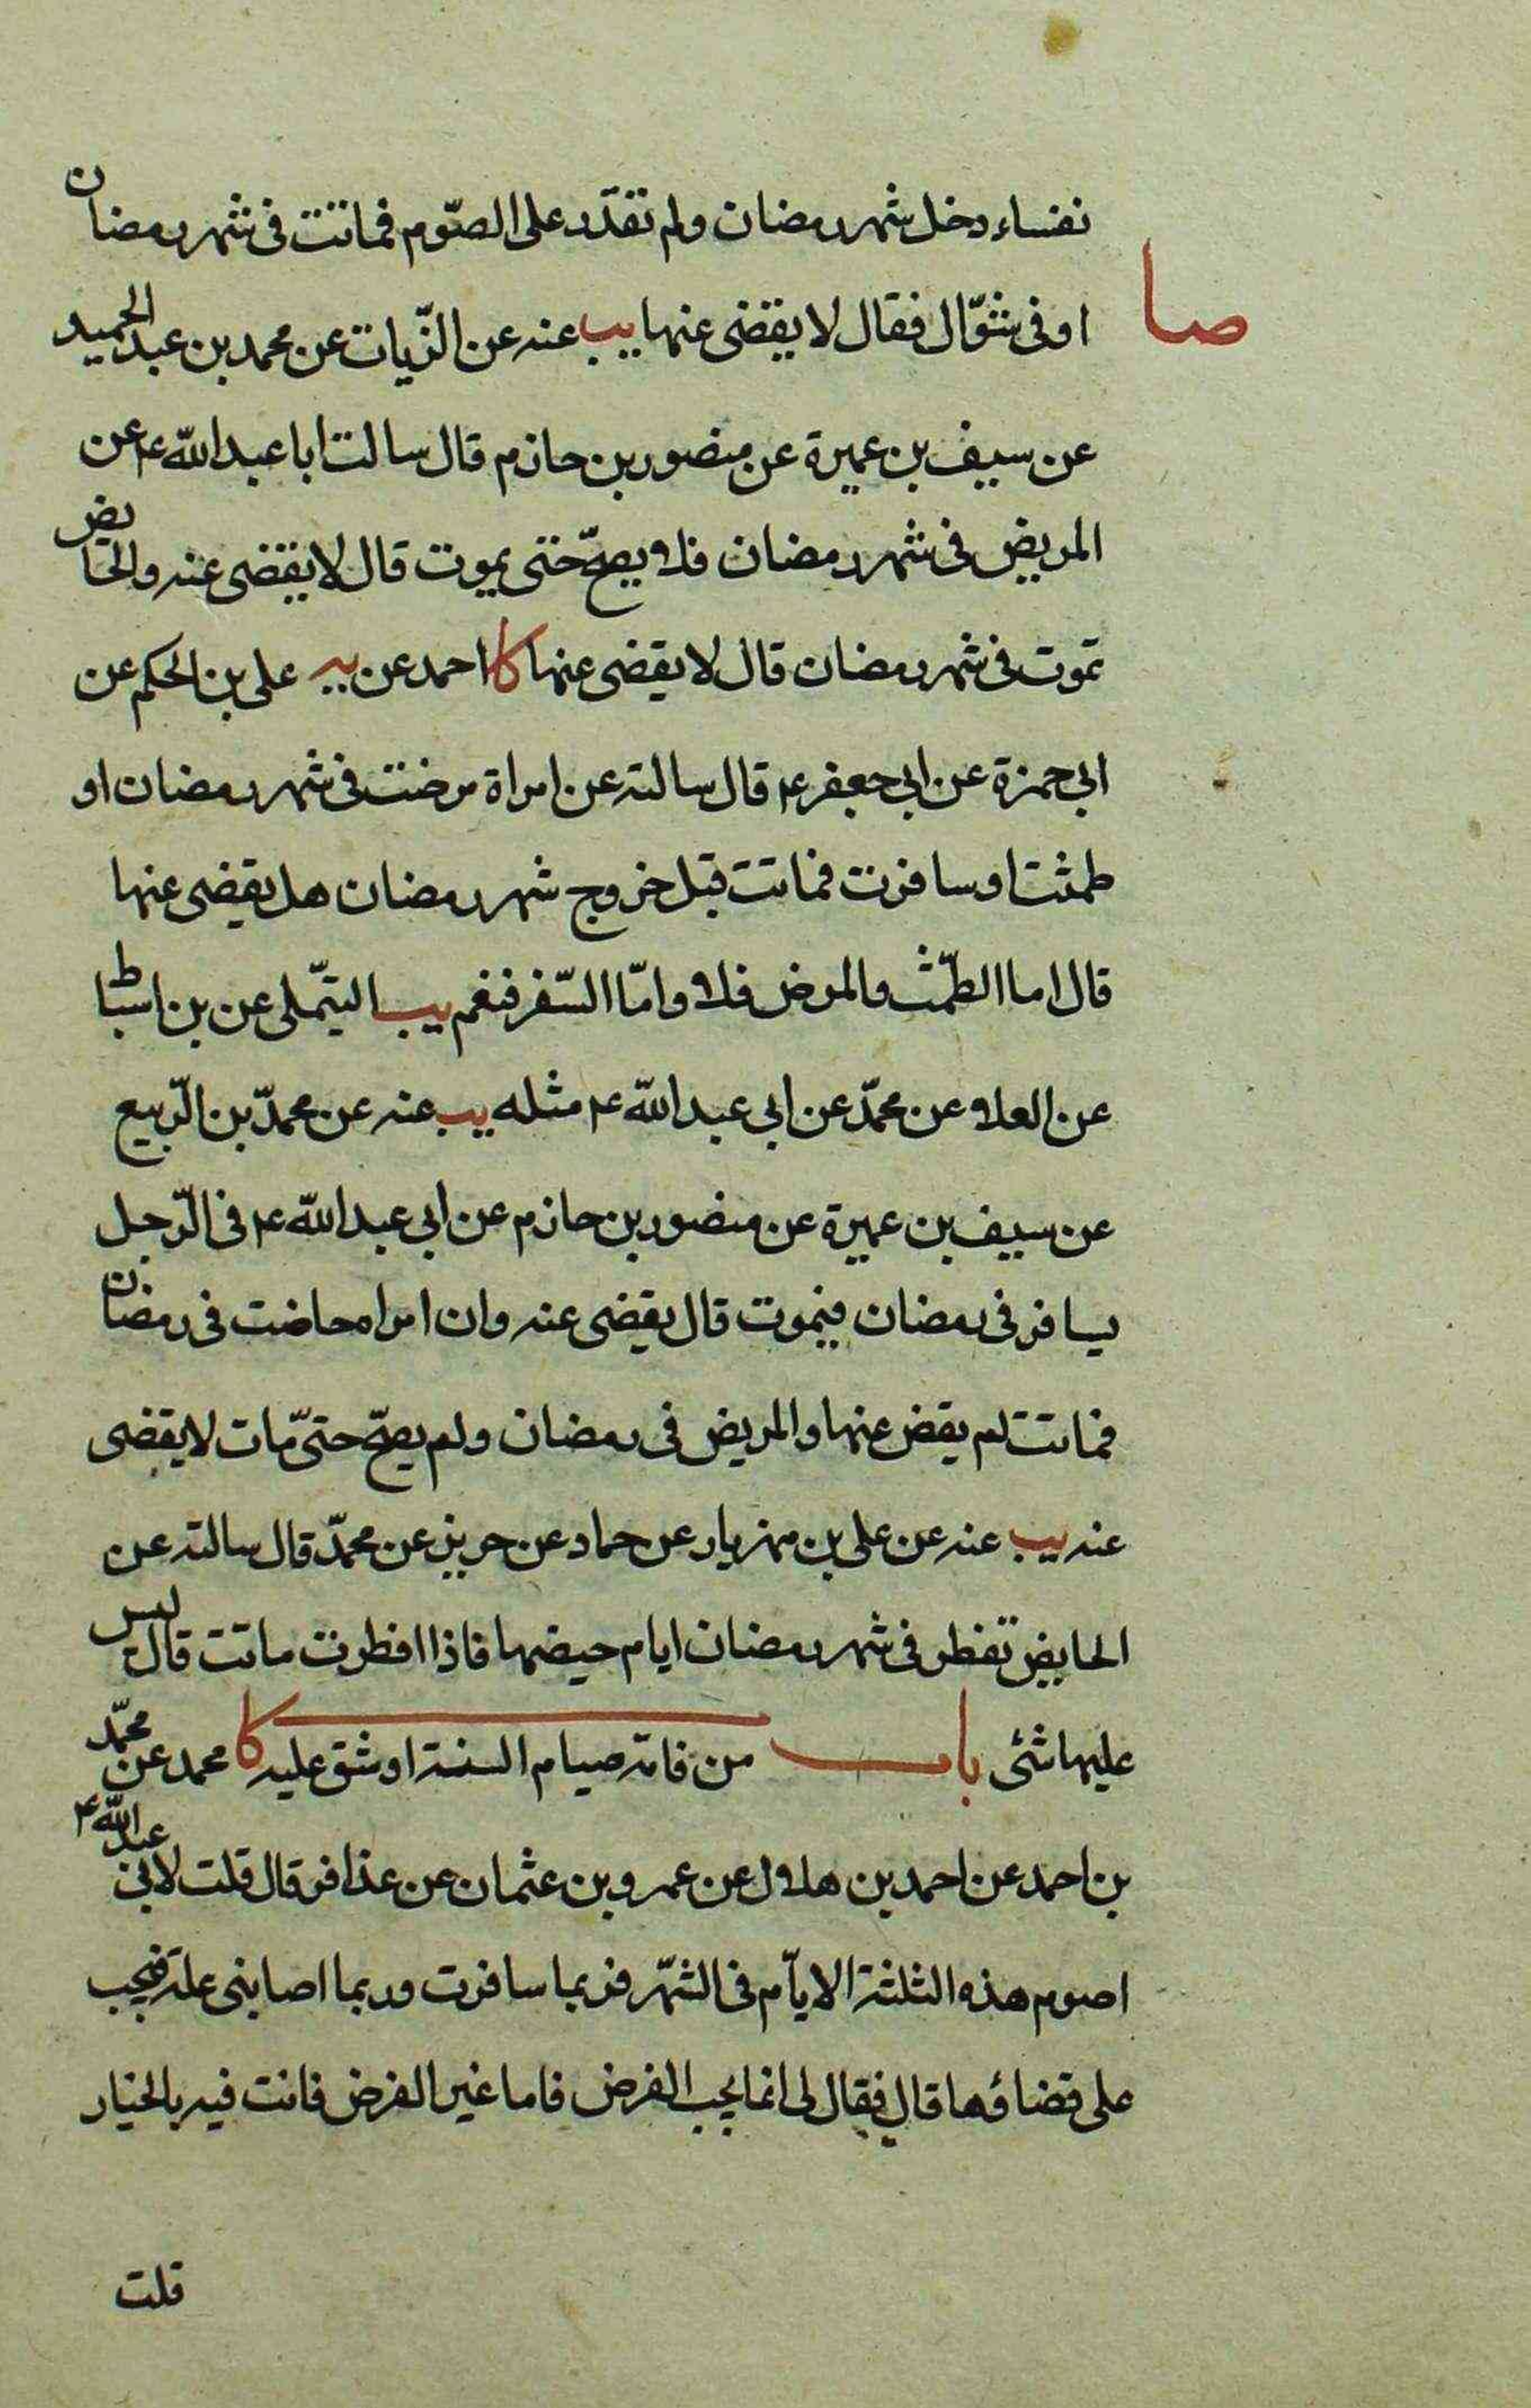 نفساء دخل شهر رمضان ولم تقدّر على الصّوم فماتت فى شهر رمضان
صا
او فى شوّال فقال لا يقضى عنها يب عنه عن الزّيات عن محمد بن عبد الحميد
عن سيف بن عميرة عن منصور بن حازم قال سالت ابا عبد اللّه ع عن
المريض فى شهر رمضان فلا يصحّ حتى يموت قال لا يقضى عنه والحايض
تموت فى شهر رمضان قال لا يقضى عنها كا احمد عن يه على بن الحكم عن
ابى حمزة عن ابى جعفر ع قال سالته عن امراة مرضت فى شهر رمضان او
طمثت او سافرت فماتت قبل خروج شهر رمضان هل يقضى عنها
قال اما الطّمث والمرض فلا وامّا السّفر فنعم يب التيّملى عن بن اسباط
عن العلا عن محمّد عن ابى عبد اللّه ع مثله يب عنه عن محمّد بن الرّبيع
عن سيف بن عميرة عن منصور بن حازم عن ابى عبد اللّه ع فى الرّجل
يسافر فى رمضان فيموت قال يقضى عنه وان امراه حاضت فى رمضان
فماتت لم يقض عنها والمريض فى رمضان ولم يصحّ حتىّ مات لا يقضى
عنه يب عنه عن على بن مهزيار عن حماد عن حريز عن محمّد قال سالته عن
الحايض تفطر فى شهر رمضان ايام حيضها فاذا افطرت ماتت قال ليس
عليها شئى باب من فاته صيام السنة او شق عليه كا محمد عن محمّد
بن احمد عن احمد بن هلال عن عمرو بن عثمان عن عذافر قال قلت لابى عبد اللّه ع
اصوم هذه الثلثة الايّام فى الشّهر فربما سافرت وربما اصابنى علة فيجب
على قضاؤها قال فقال لى انما يجب الفرض فاما غير الفرض فانت فيه بالخيار
قلت